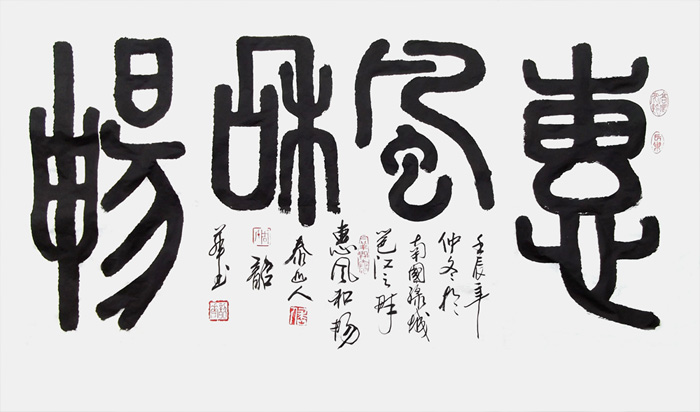 惠風和暢
壬辰年
仲冬於
南國綠城
邕江之畔
惠風和暢
泰山人
韶
華书